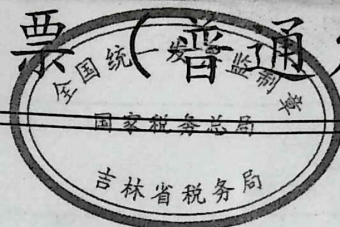 票（普通
全国统一发票监制章
国家税务总局
吉林省税务局